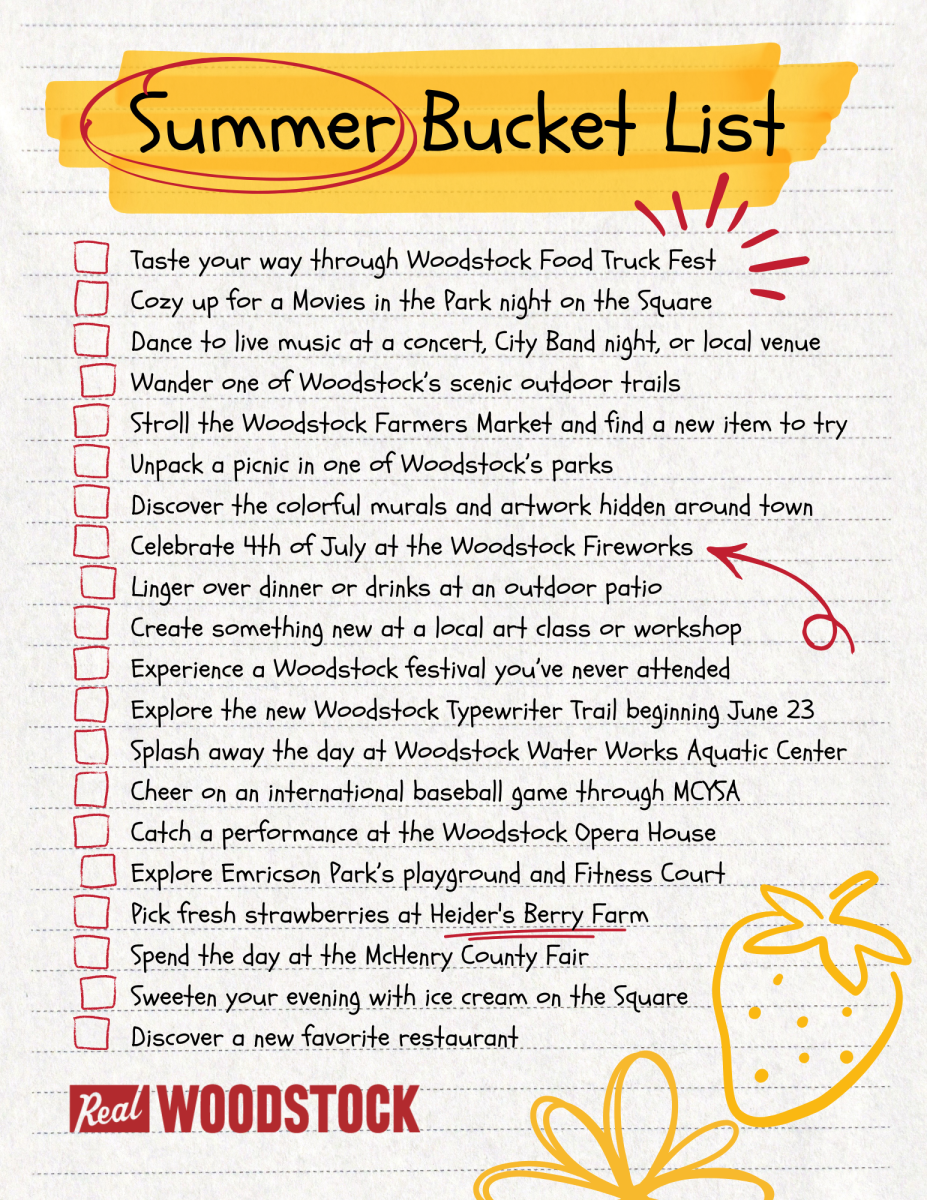 Summer Bucket List
Taste your way through Woodstock Food Truck Fest
Cozy up for a Movies in the Park night on the Square
Dance to live music at a concert, City Band night, or local venue
Wander one of Woodstock's scenic outdoor trails
Stroll the Woodstock Farmers Market and find a new item to try
Unpack a picnic in one of Woodstock's parks
Discover the colorful murals and artwork hidden around town
Celebrate 4th of July at the Woodstock Fireworks
Linger over dinner or drinks at an outdoor patio
Create something new at a local art class or workshop
Experience a Woodstock festival you've never attended
Explore the new Woodstock Typewriter Trail beginning June 23
Splash away the day at Woodstock Water Works Aquatic Center
Cheer on an international baseball game through MCYSA
Catch a performance at the Woodstock Opera House
Explore Emricson Park's playground and Fitness Court
Pick fresh strawberries at Heider's Berry Farm
Spend the day at the McHenry County Fair
Sweeten your evening with ice cream on the Square
Discover a new favorite restaurant
Real WOODSTOCK